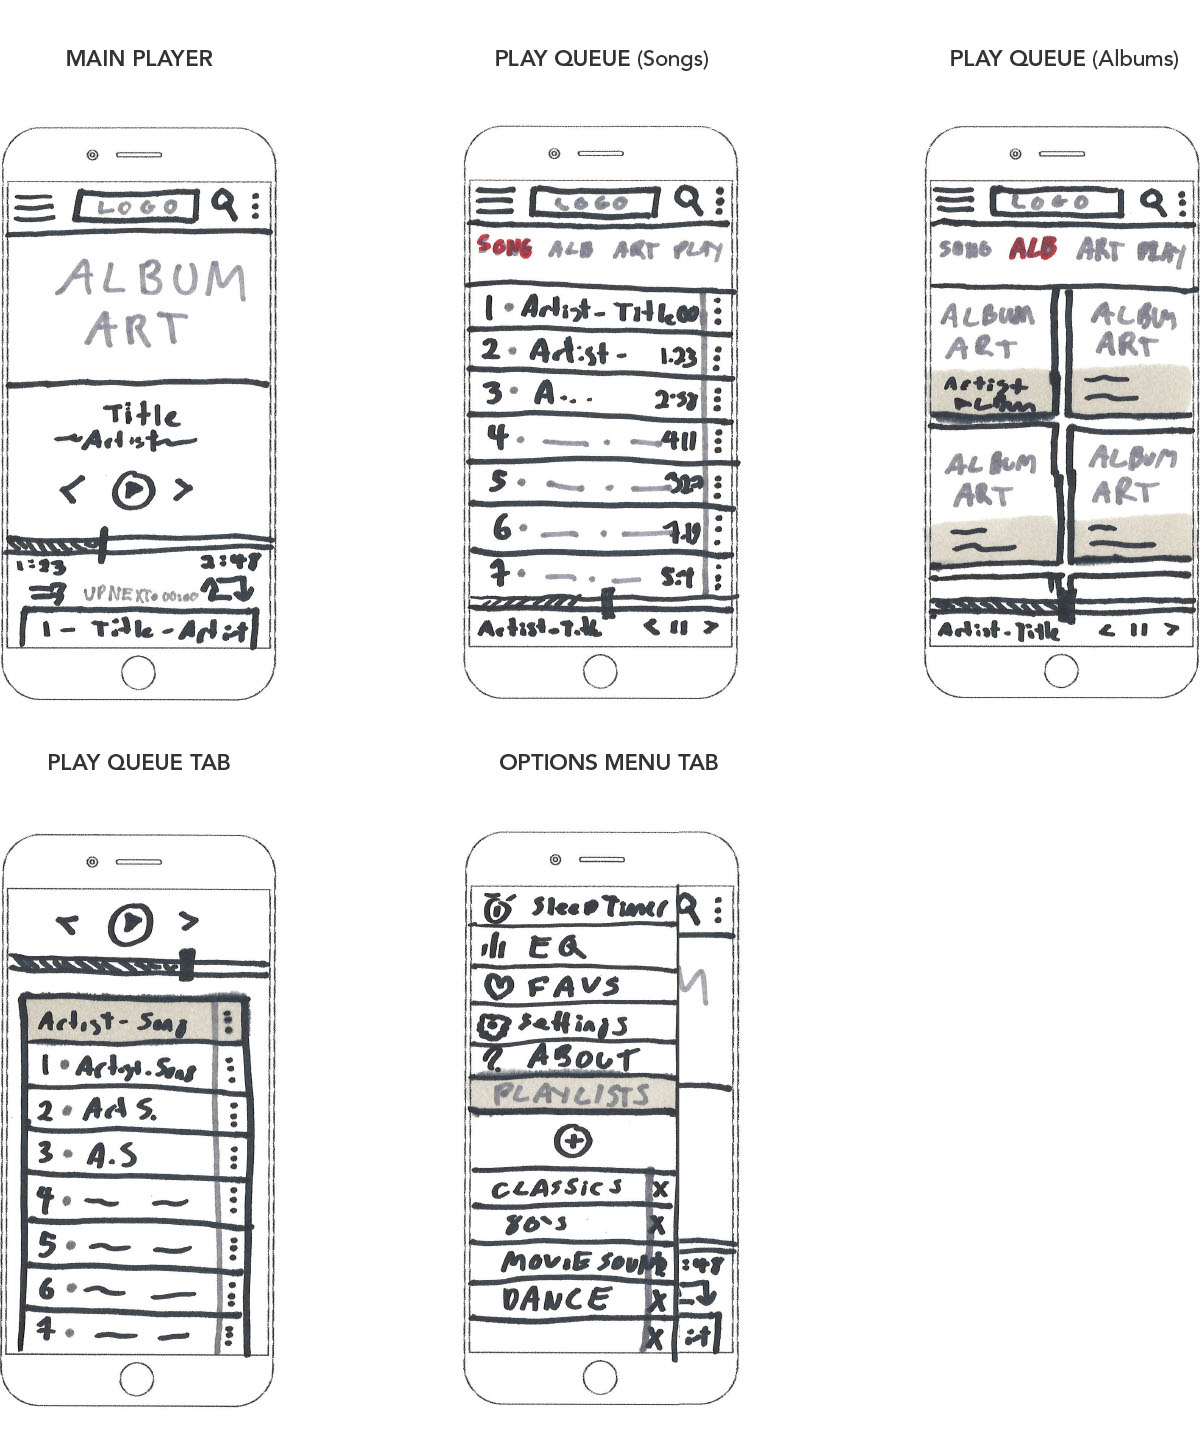 MAIN PLAYER
LOGO
ALBUM
ART
Title
Artist
1:23 2:48
UP NEXT: 00:00
1 - Title - Artist
PLAY QUEUE (Songs)
LOGO
SONG ALB ART PLAY
1 • Artist - Title
2 • Artist - 1:23
3 • A... 2:58
4 • 411
5 •
6 •
7 •
Artist - Title
PLAY QUEUE (Albums)
LOGO
SONG ALB ART PLAY
ALBUM ALBUM
ART ART
Artist
Album
ALBUM ALBUM
ART ART
Artist - Title
PLAY QUEUE TAB
Artist - Song
1 • Artist . Song
2 • Art S.
3 • A.S
4 •
5 •
6 •
7 •
OPTIONS MENU TAB
Sleep Timer
EQ
FAVS
Settings
? ABOUT
PLAYLISTS
CLASSICS X
80's X
MOVIE SOUN :48
DANCE X
X